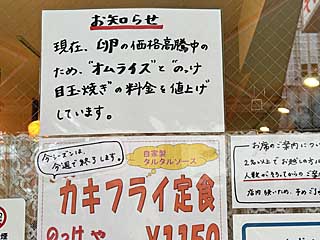 お知らせ
現在、卵の価格高騰中の
ため、"オムライス"と"のっけ
目玉焼き"の料金を値上げ
しています。
今シーズンは、
今週で終了します。
自家製
タルタルソース
カキフライ定食
のっけや
¥1150
お席のご案内につい
2名以上でお越しの方は
人数がそろってからのご案
店内狭いため、予めご了